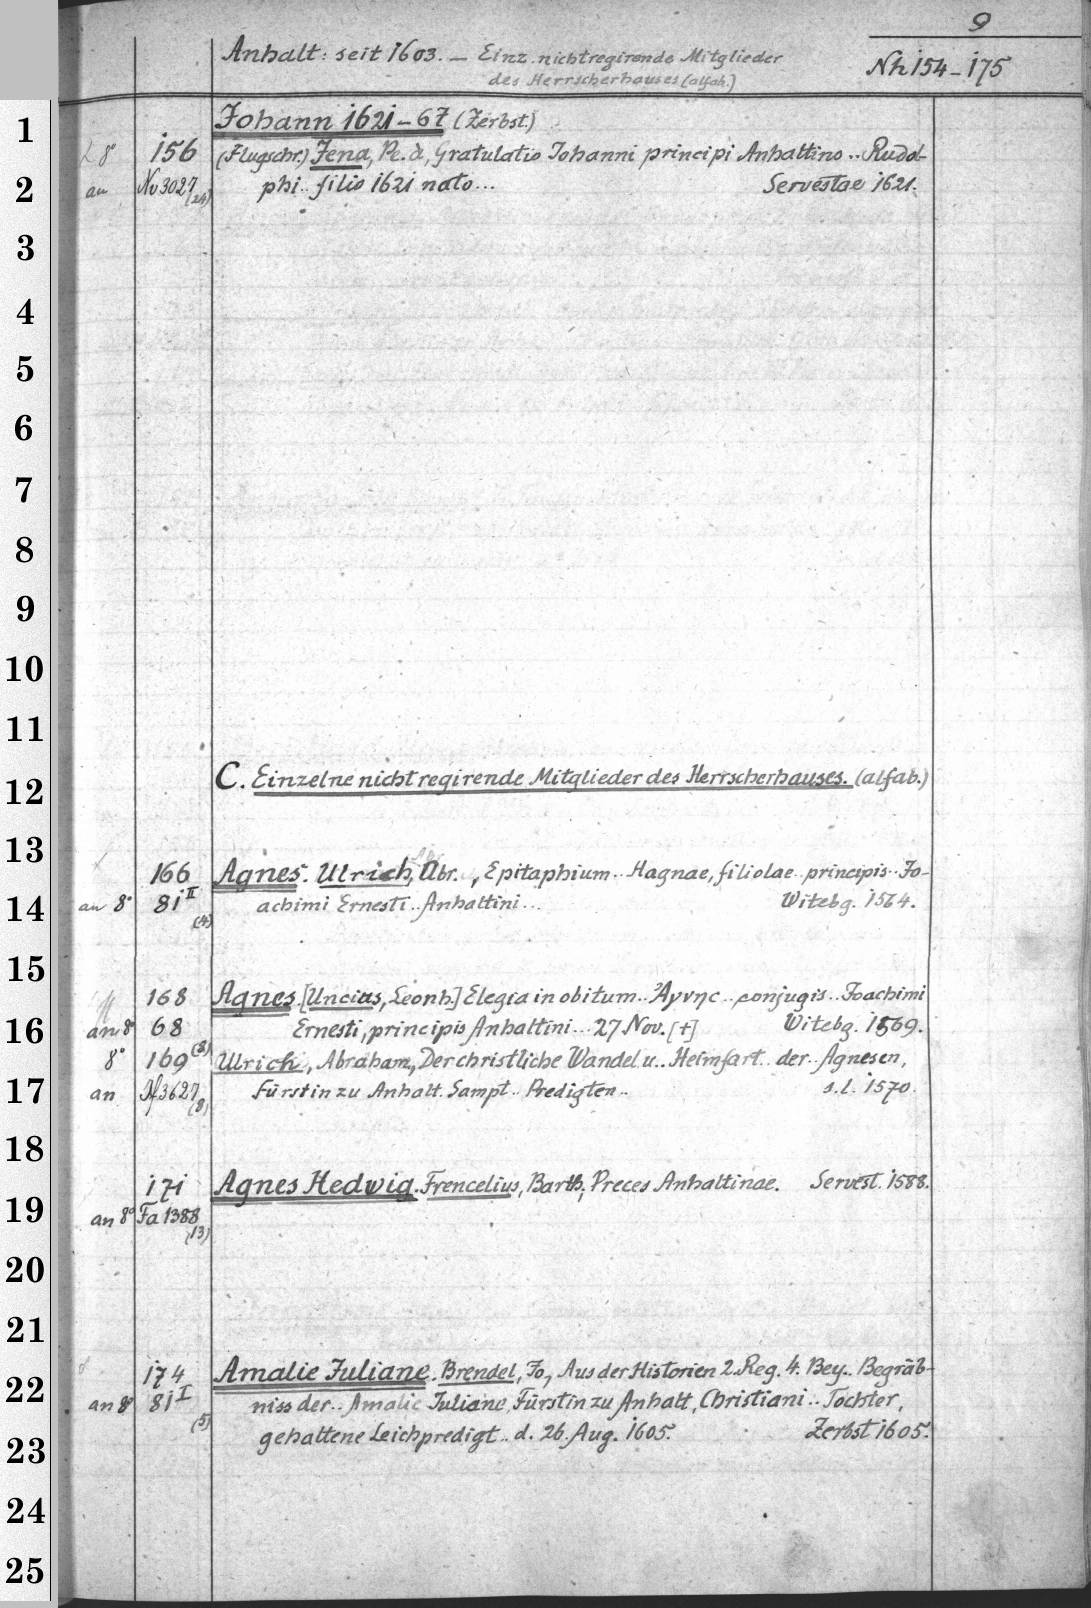 9
Anhalt: seit 1603. — Einz. nichtregirende Mitglieder
des Herrscherhauses (alfab.)
Nh 154-175
1
Johann 1621-67 (Zerbst.)
8° 156 (Flugschr.) Jena, Pe. à, Gratulatio Johanni principi Anhaltino .. Rudol-
2
an Nv 3027 (24) phi .. filio 1621 nato ... Servestae 1621.
3
4
5
6
7
8
9
10
11
12
C. Einzelne nicht regirende Mitglieder des Herrscherhauses. (alfab.)
13
166 Agnes. Ulrich, Abr., Epitaphium .. Hagnae, filiolae .. principis .. Jo-
14
an 8° 81 II (4) achimi Ernesti .. Anhaltini ... Witebg. 1564.
15
168 Agnes [Uncius, Leonh.] Elegia in obitum .. Ἁγνης .. conjugis .. Joachimi
16
an 8° 68 (3) Ernesti, principis Anhaltini ... 27 Nov. [†] Witebg. 1569.
8° 169 Ulrich, Abraham, Der christliche Wandel u.. Heimfart .. der .. Agnesen,
17
an If 3627 (8) Fürstin zu Anhalt. Sampt .. Predigten .. s.l. 1570.
18
171 Agnes Hedwig. Frencelius, Barth., Preces Anhaltinae. Servest. 1588.
19
an 8° Fa 1388 (13)
20
21
174 Amalie Juliane. Brendel, Jo., Aus der Historien 2. Reg. 4. Bey .. Begräb-
22
an 8° 81 I (5) niss der .. Amalie Juliane, Fürstin zu Anhalt, Christiani .. Tochter,
23
gehaltene Leichpredigt .. d. 26. Aug. 1605. Zerbst 1605.
24
25